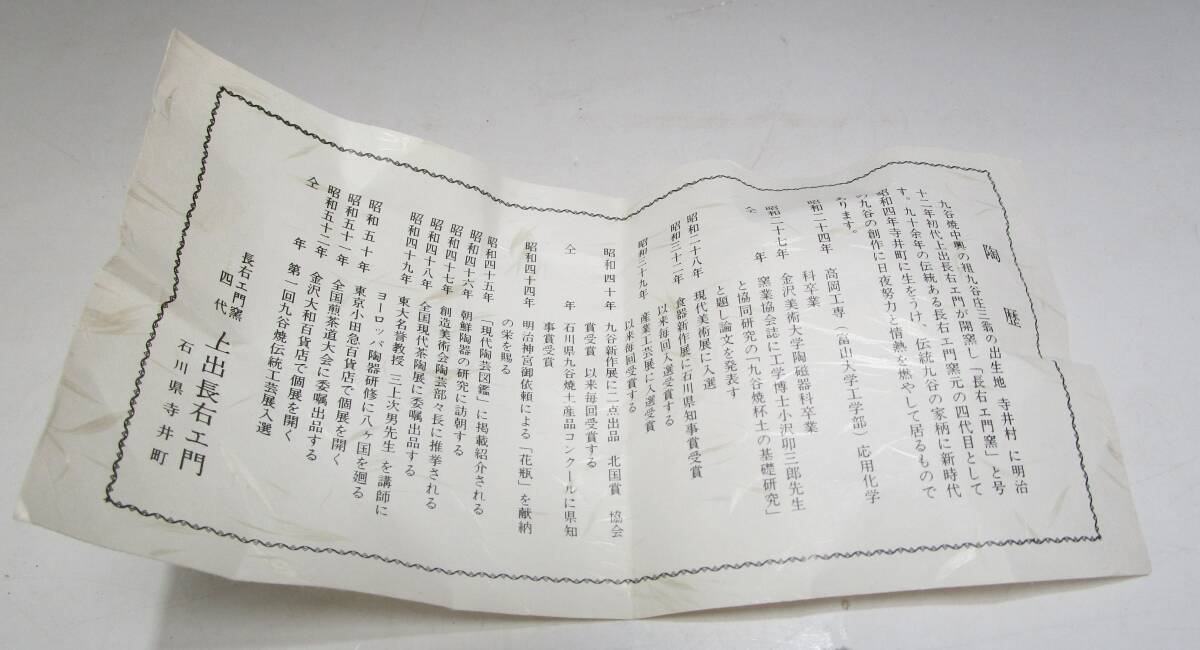 陶歴
九谷焼中興の祖九谷庄三翁の出生地 寺井村に明治
十二年初代上出長右ヱ門が開窯し「長右ヱ門窯」と号
す。九十余年の伝統ある長右ヱ門窯元の四代目として
昭和四年寺井町に生をうけ、伝統九谷の家柄に新時代
九谷の創作に日夜努力と情熱を燃やして居るもので
ります。
昭和二十四年 高岡工専(富山大学工学部)応用化学
科卒業
昭和二十七年 金沢美術大学陶磁器科卒業
仝年 窯業協会誌に工学博士小沢卯三郎先生
と協同研究の「九谷焼杯土の基礎研究」
と題し論文を発表す
昭和二十八年 現代美術展に入選
昭和三十二年 食器新作展に石川県知事賞受賞
以来毎回入選受賞する
昭和三十九年 産業工芸展に入選受賞
以来毎回受賞する
昭和四十年 九谷新作展に二点出品 北国賞 協会
賞受賞 以来毎回受賞する
仝年 石川県九谷焼土産品コンクールに県知
事賞受賞
昭和四十四年 明治神宮御依頼による「花瓶」を献納
の栄を賜る
昭和四十五年 「現代陶芸図鑑」に掲載紹介される
昭和四十六年 朝鮮陶器の研究に訪朝する
昭和四十七年 創造美術会陶芸部々長に推挙される
昭和四十八年 全国現代茶陶展に委嘱出品する
昭和四十九年 東大名誉教授 三上次男先生 を講師に
ヨーロッパ陶器研修に八ヶ国を廻る
昭和五十年 東京小田急百貨店で個展を開く
昭和五十一年 全国煎茶道大会に委嘱出品する
昭和五十二年 金沢大和百貨店で個展を開く
仝年 第一回九谷焼伝統工芸展入選
長右ヱ門窯
四代 上出長右ヱ門
石川県寺井町